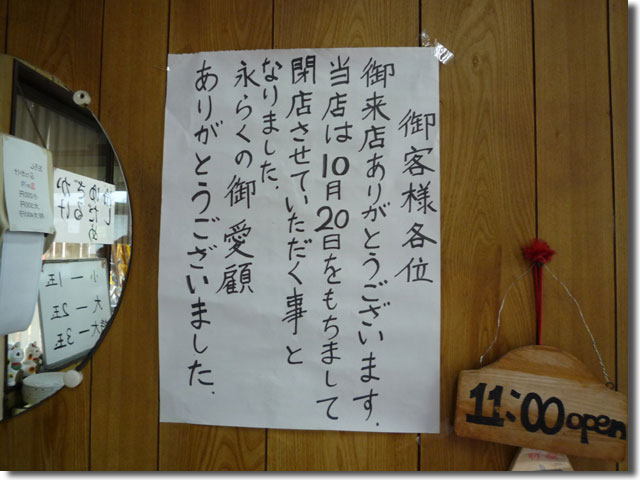 御客様各位
御来店ありがとうございます.
当店は10月20日をもちまして
閉店させていただく事と
なりました.
永らくの御愛顧
ありがとうございました.
11:00 open
かけ
ざる
ゆだめ
小一1玉
大一2玉
一3玉